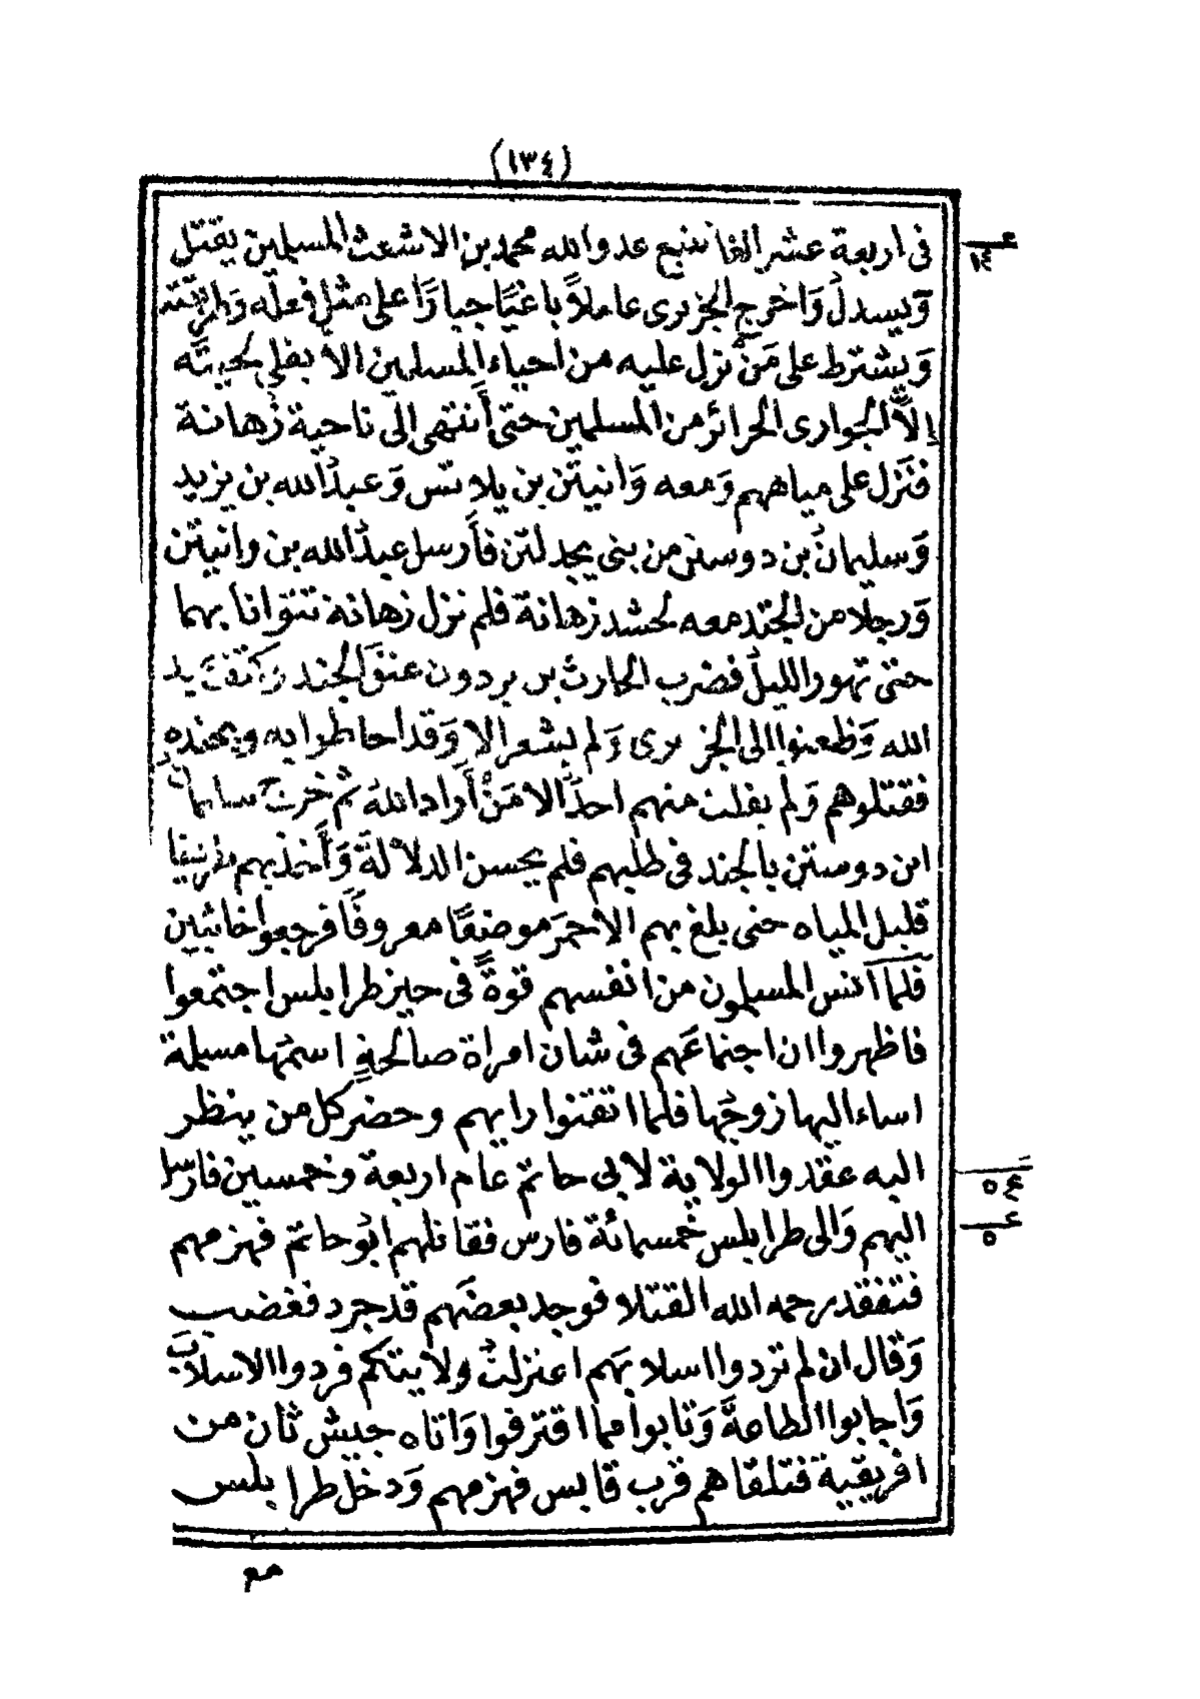 (١٣٤)
في اربعة عشر الفا تتبع عدو الله محمد بن الاشعث المسلمين يقتل
وَيسدل وَاخرج الجزرى عاملاً باغيًا جبارًا على مثل فعله
وَيشترط على مَنْ نزل عليه من احياء المسلمين الا يفلى لحيته
إلاَّ الجوارى الحرائر من المسلمين حتى أنتهى الى ناحية زهانة
فنزل على مياههم وَمعه وَانيتن بن يلاتس وَعبد الله بن يزيد
وَسليمان بن دوستن من بنى يجدلتن فأرسل عبد الله بن وانيتن
وَرجلا من الجند معه لحشد زهانة فلم نزل زهانة تتوانا بهما
حتى تهور الليل فضرب الحارث بن بردون عنق الجند وَكتف
الله وَظعنوا الى الجزرى وَلم يشعر الا وَقد احاطوا به وبجنده
فقتلوهم وَلم يفلت منهم احدٌ الا مَنْ أراد اللهُ ثم خرج سليمان
ابن دوستن بالجند في طلبهم فلم يحسن الدلالة وَأخذ بهم طريقا
قليل المياه حتى بلغ بهم الاحمَر موضعًا معروفًا فرجعوا خائبين
فلما آنس المسلمون من انفسهم قوةً في حيز طرابلس اجتمعوا
فاظهروا ان اجتماعَهم في شان امراة صالحةٍ اسمها مسيلة
اساء اليها زوجُها فلما اتقنوا رايهم وحضر كل من ينظر
اليه عقدوا الولاية لابى حاتم عام اربعة وخمسين فارسل
اليهم وَالى طرابلس خمسمائة فارس فقاتلهم ابُو حاتم فهزمهم
فتفقد رحمه الله القتلا فوجد بعضَهم قد جرد فغضب
وَقال ان لم تردوا اسلابهم اعتزلت ولايتكم فردوا الاسلاب
وَاجابوا الطاعةَ وَتابوا مما اقترفوا وَاتاه جيش ثان من
افريقية فتلقاهم قرب قابس فهزمهم وَدخل طرابلس
مع
١٤
٥٤
٥